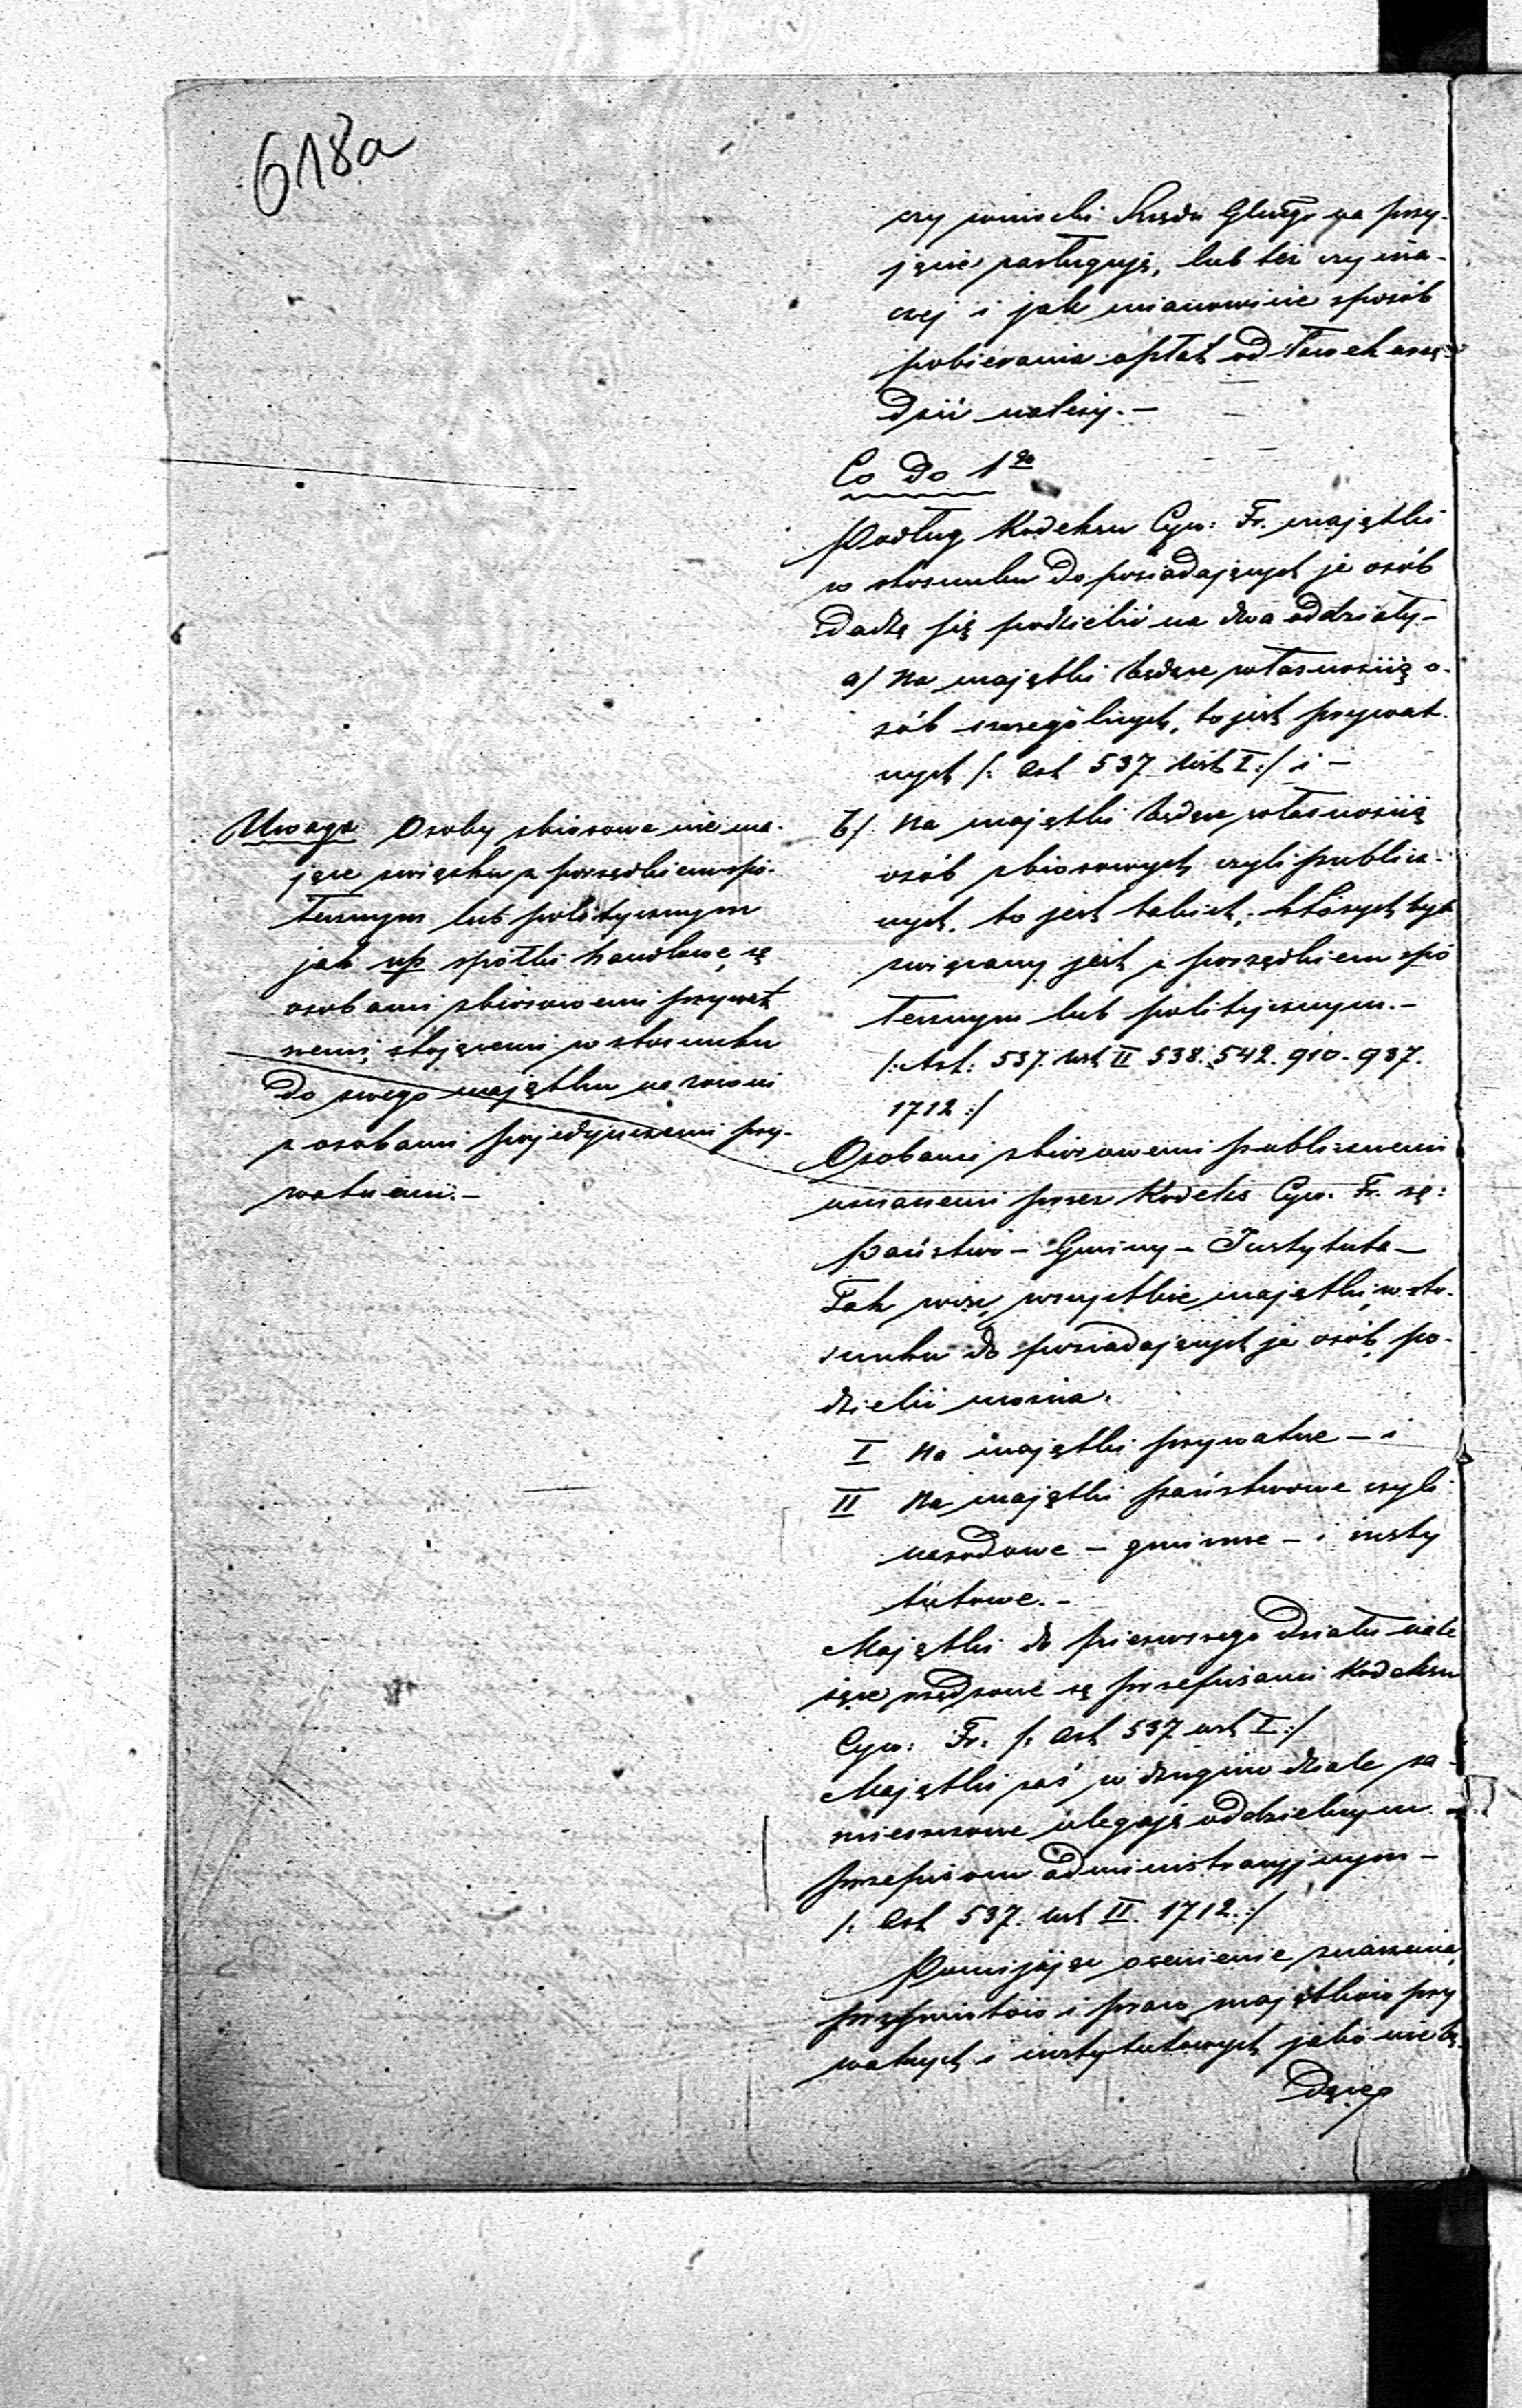 618a
czy wnioski Urzędu Głwgo na przy-
jęcie zasługują, lub też czy ina-
czej i jak mianowicie sposób
pobierania opłat od tych
dzić należy. —
Co do 1go
Podług Kodeksu Cyw: Fr. majątki
w stosunku do posiadających je osób
dadzą się podzielić na dwa oddziały —
a/ Na majątki będące własnością o-
sób szczególnych, to jest prywat-
nych /: Art 537 ust I :/ i —
b/ Na majątki będące własnością
osób zbiorowych czyli publicz-
nych, to jest takich, których byt
związany jest z porządkiem spó
łecznym lub politycznym. —
/: Art: 537. ust II 538. 542. 910. 937.
1712 :/
Osobami zbiorowemi publicznemi
uznanemi przez Kodeks Cyw. Fr. są:
Państwo — Gminy — Instytuta —
Tak więc, wszystkie majątki, w sto-
sunku do posiadających je osób, po-
dzielić można.
I Na majątki prywatne — i
II Na majątki państwowe czyli
narodowe — gminne — i insty
tutowe. —
Majątki do pierwszego działu nale
żące rządzone są przepisami Kodeksu
Cyw: Fr: /: Art 537 ust I :/
Majątki zaś w drugim dziale za-
mieszczone ulegają oddzielnym
przepisom administracyjnym —
/: Art 537. ust II. 1712. :/
Pomijając ocenienie znaczenia
przymiotów i praw majątków pry
watnych i instytutowych jako nie bę-
dące
Uwaga Osoby zbiorowe nie ma-
jące związku z porządkiem spó-
łecznym lub politycznym
jak np spółki handlowe, są
osobami zbiorowemi prywat
nemi, stojącemi w stosunku
do swego majątku na równi
z osobami pojedynczemi pry-
watnemi. —